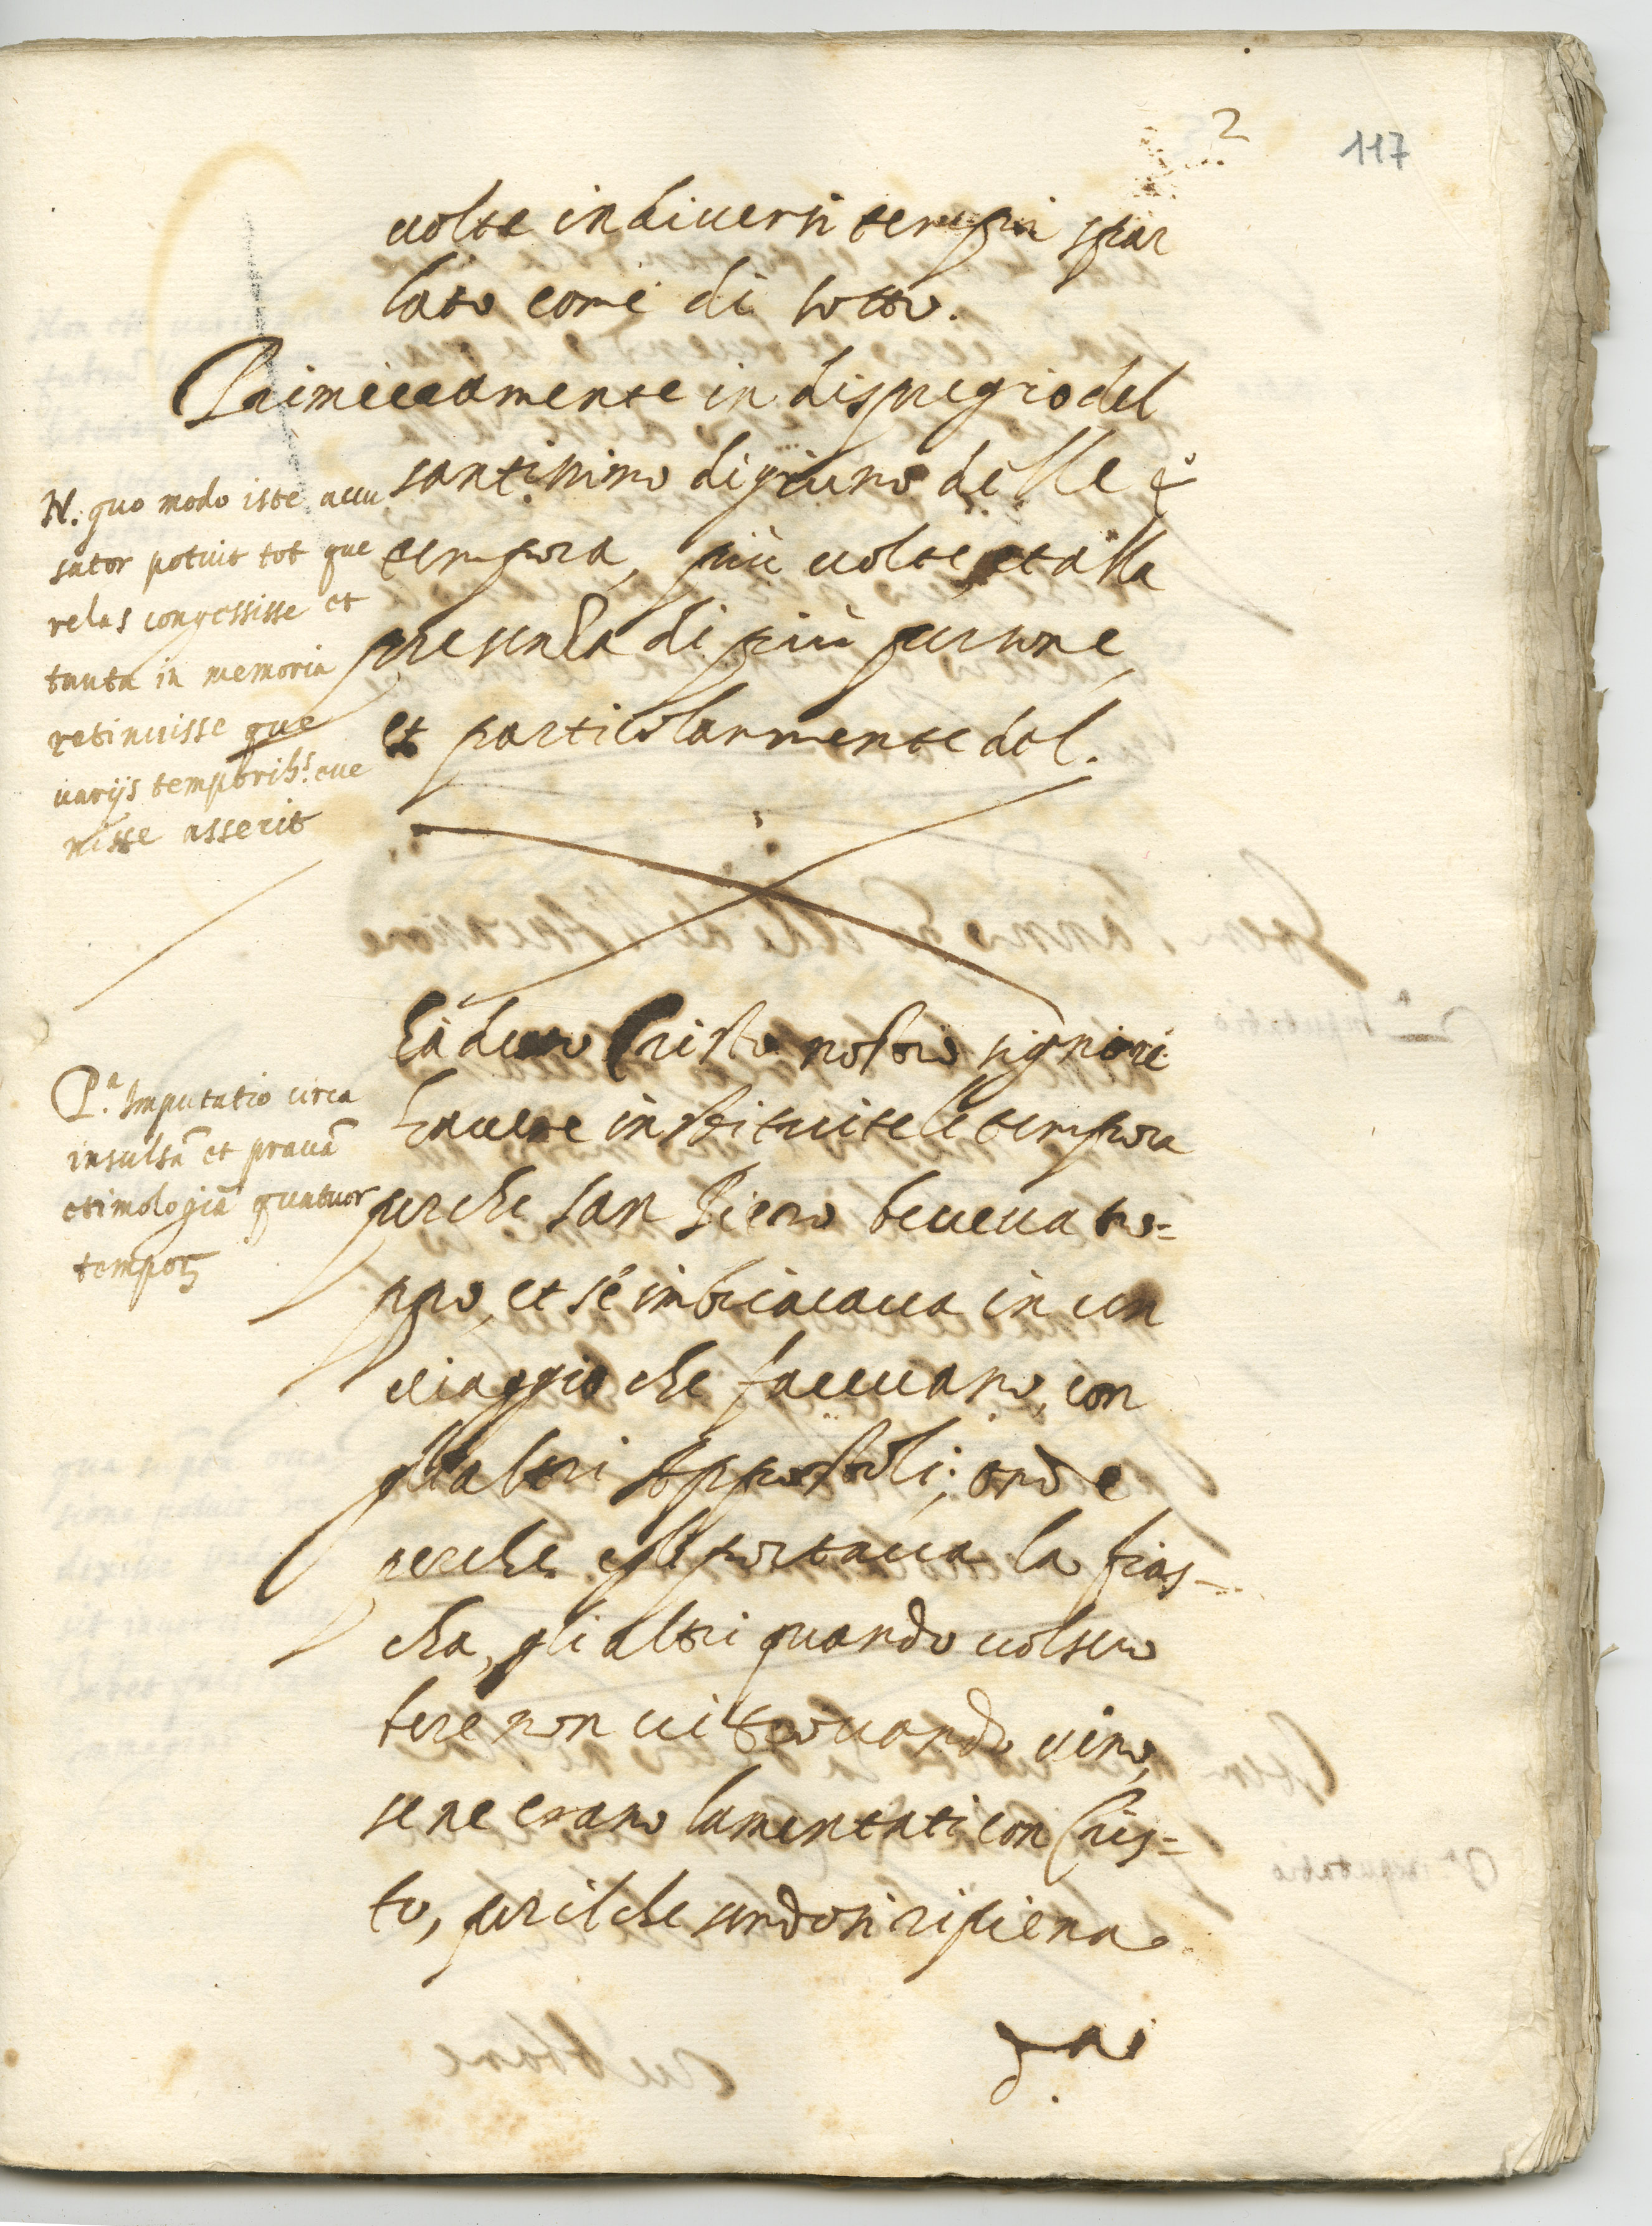 2
117
volte in diuersi tempi spar
lato come di sotto.
Primieramente in dispregio del
santissimo digiuno delle 4º
tempora, più uolte, et alla
presenza di più persone,
et particolarmente del.
N. quo modo iste accu
sator potuit tot que
relas congessisse et
tanta in memoria
retinuisse que
uarijs temporibs. eue
nisse asserit
hà detto Cristo nostro signore
hauere instituite le tempora
perche san Piero beueua tro=
ppo, et se imbriacaua in un
uiaggio che faceuano, con
gli altri Appostoli; onde
perche egli portaua la fias-
cha, gli altri quando uolsero
bere non ui trouando uino,
se ne erano lamentati con Cris=
to, per il che sendosi ripiena
P.ª Imputatio circa
insulsã et prauã
etimologiã quatuor
tempoꝝ
dai